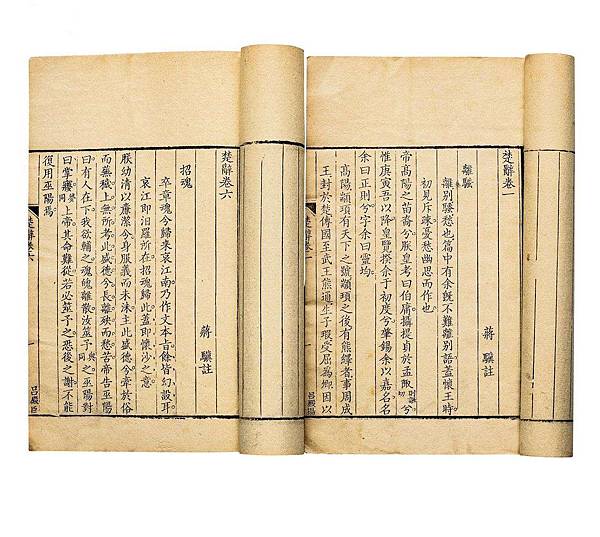 楚辭卷一
蔣驥註
離騷
離別騷愁也篇中有余旣不難離別語蓋懷王時
初見斥疎憂愁幽思而作也
帝高陽之苗裔兮朕皇考曰伯庸攝提貞於孟陬兮
惟庚寅吾以降皇覽揆余于初度兮肇錫余以嘉名名
余曰正則兮字余曰靈均
高陽顓頊有天下之號顓頊之後有熊繹者事周成
王封於楚傳國至武王熊通生子瑕受屈為卿因以
楚辭卷一
楚辭卷六
蔣驥註
招魂
卒章魂兮歸來哀江南乃作文本旨餘皆幻設耳
哀江即汨羅所在招魂歸此蓋即懷沙之意
朕幼清以廉潔兮身服義而未沬主此盛德兮牽於俗
而蕪穢上無所考此盛德兮長離殃而愁苦帝告巫陽
曰有人在下我欲輔之魂魄離散汝筮予之巫陽對
曰掌夢上帝其命難從若必筮予之恐後之謝不能
復用巫陽焉
楚辭卷六